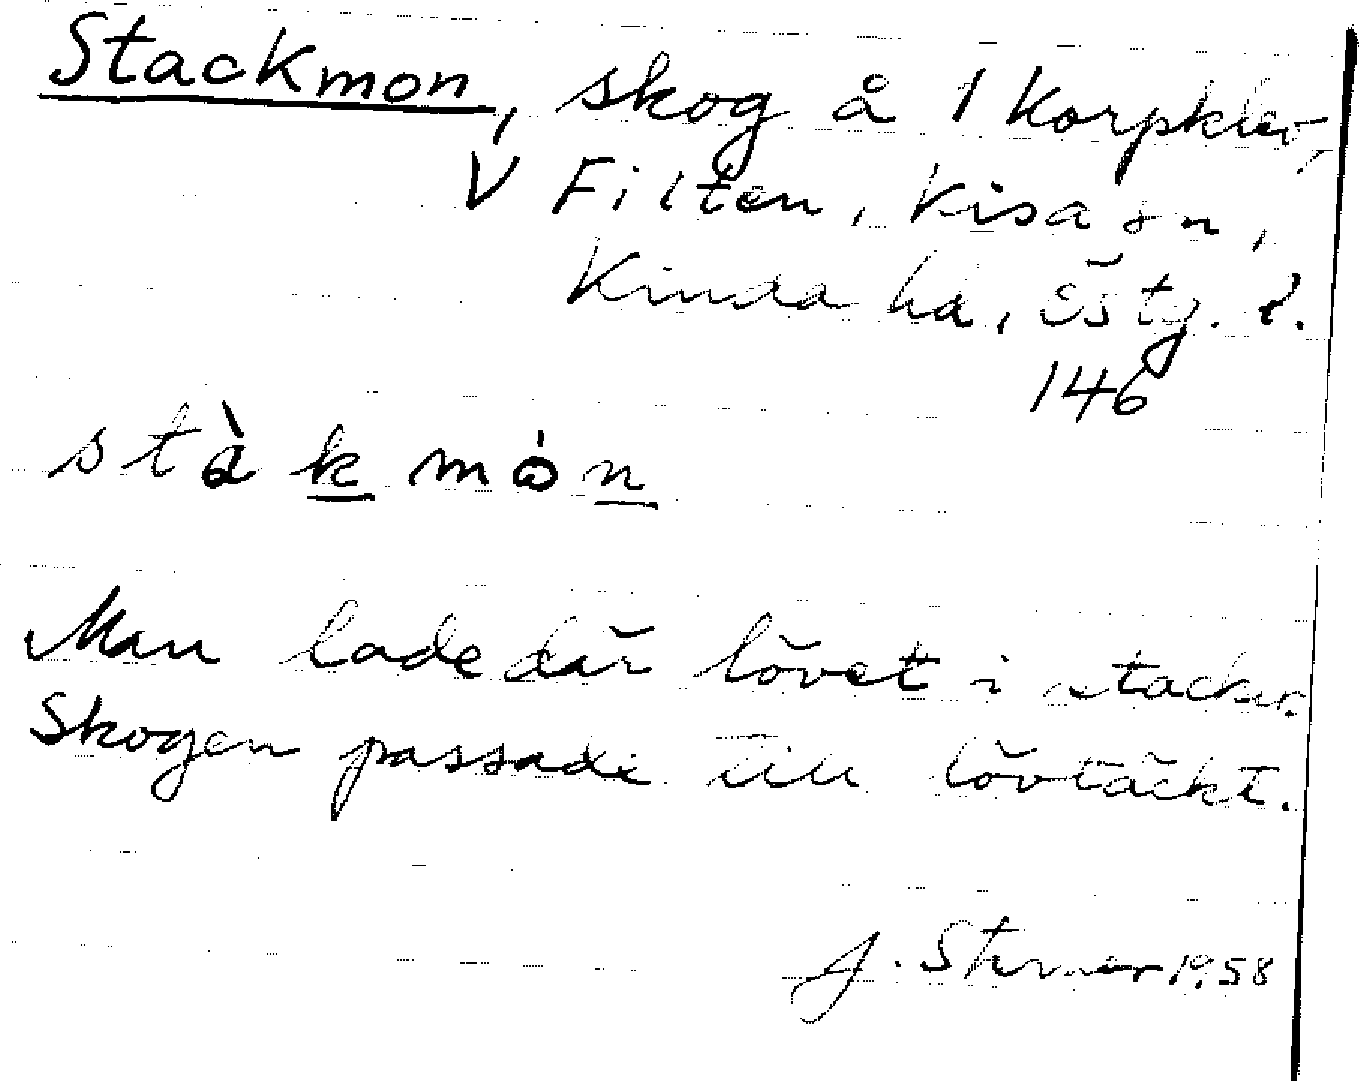 Stackmon, skog å 1 Korpklev,
V Filten, Kisa sn,
Kinda hd, Östg. l.
146
stàk mȯn
Man lade där lövet i stackar.
Skogen passade till lövtäckt.
J. Sterner 1958